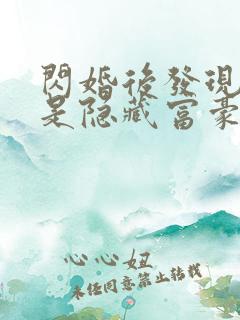 閃婚後發現
是隐藏富豪
心心妞
未经同意禁止转载